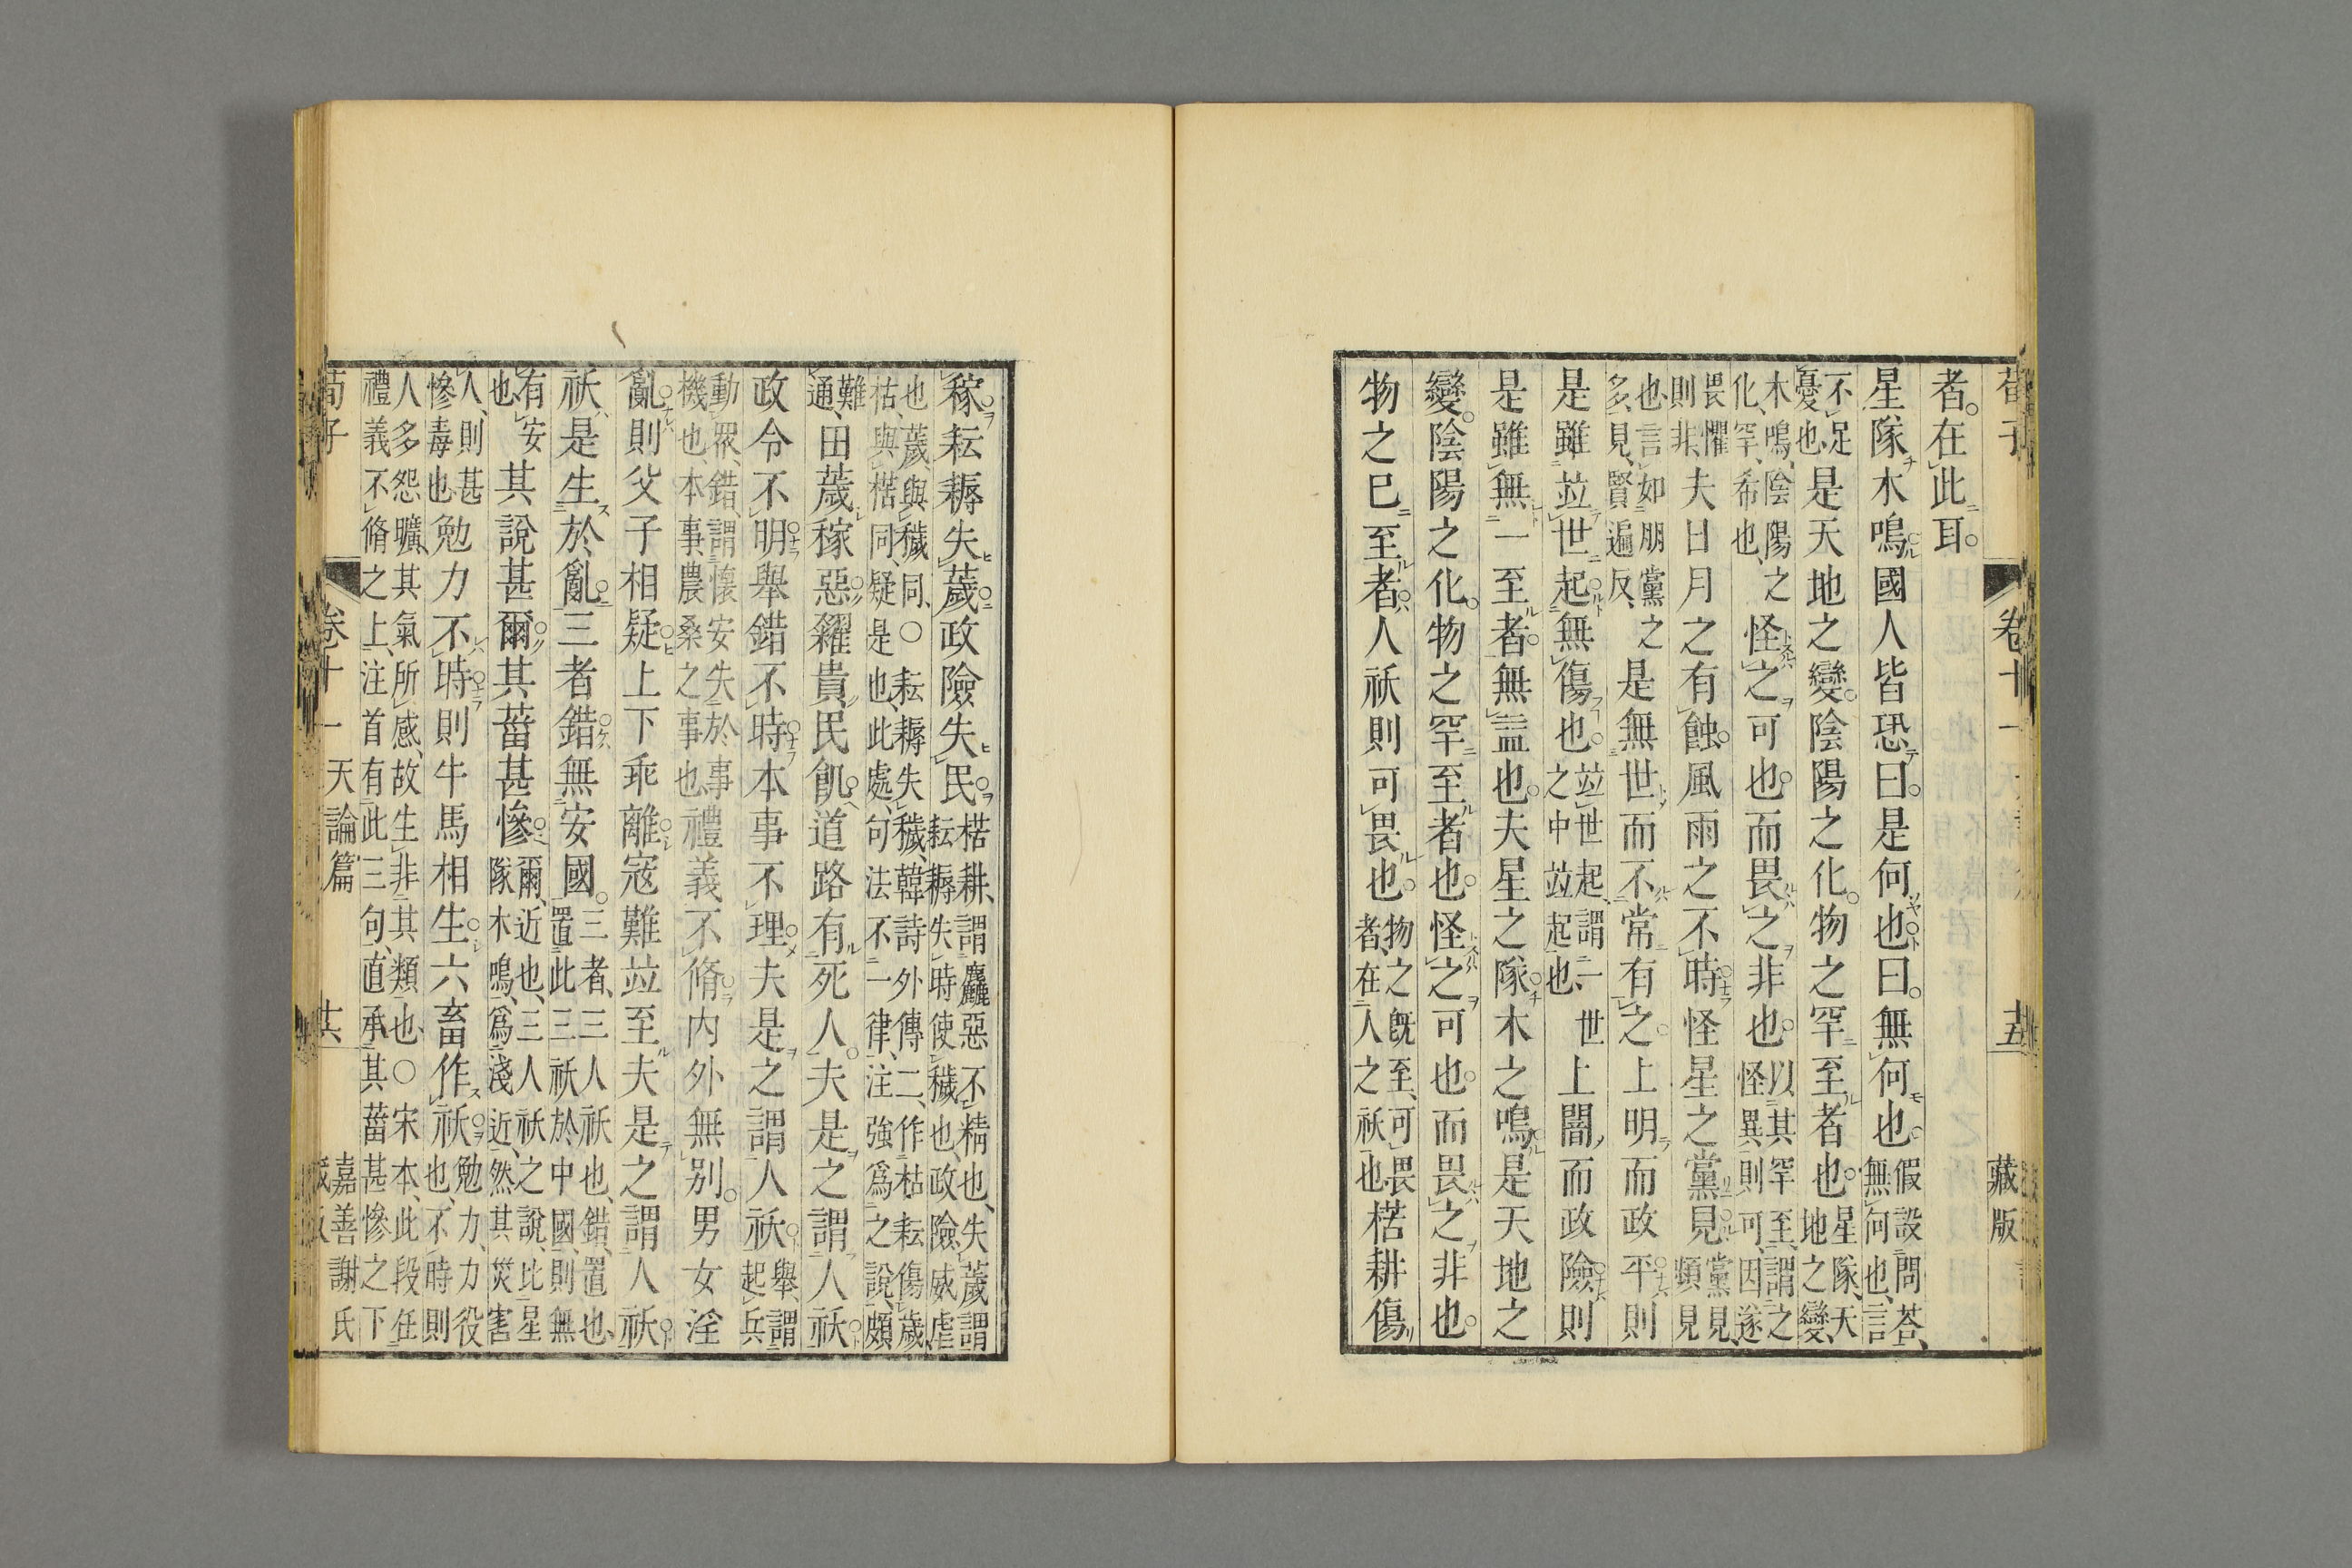 荀子 卷十一 十五 藏版
者。在此耳。
星隊木鳴國人皆恐曰。是何也曰。無何也。假設問荅、無何也、言
不足憂也是天地之變。陰陽之化。物之罕至者也。星隊、天地之變、
木鳴、陰陽之化、罕、希也、怪之可也。而畏之非也。以其罕至、謂之怪異則可、因遂
畏懼則非、夫日月之有蝕。風雨之不時怪星之黨見黨見、頻見
也、言如朋黨之多、見、賢遍反、是無世而不常有之。上明而政平則
是雖竝世起無傷也。竝世起、謂一世之中竝起也、上闇而政險則
是雖無一至者。無益也。夫星之隊木之鳴是天地之
變。陰陽之化。物之罕至者也。怪之可也。而畏之非也。
物之已至者人祅則可畏也。物之既至、可畏者、在人之祅也、楛耕傷
稼耘耨失薉政險失民楛耕、謂麤惡不精也、失薉謂耘耨失時使穢也、政險威虐
也、薉、與穢同、○耘耨失穢、韓詩外傳二、作枯耘傷歲、枯、與楛同、疑是也、此處句法不一律、注強爲之說、頗
難通、田薉稼惡糴貴民飢道路有死人。夫是之謂人祅
政令不明舉錯不時本事不理夫是之謂人祅舉、謂起兵
動眾、錯、謂懷安失於事機也、本事、農桑之事也、禮義不脩内外無別。男女淫
亂則父子相疑上下乖離寇難竝至夫是之謂人祅
祅是生於亂三者錯無安國。三者、三人祅也、錯、置也、置此三祅於中國、則無
有安也、其說甚爾其菑甚慘爾、近也、三人祅之說、比星隊木鳴、爲淺近、然其災害
人、則甚慘毒也、勉力不時則牛馬相生六畜作祅勉力、力役也、不時則
人多怨曠、其氣所感、故生非其類也、○宋本、此段在禮義不脩之上、注首有此三句、直承其菑甚慘之下
荀子 卷十一 天論篇 十六 嘉善謝氏藏版